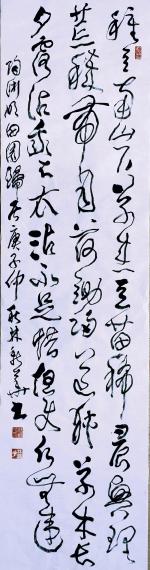 種豆南山下草盛豆苗稀晨興理
荒穢帶月荷鋤歸道狹草木長
夕露沾我衣衣沾不足惜但使願無違
陶淵明田園歸居庚子仲秋林新華書